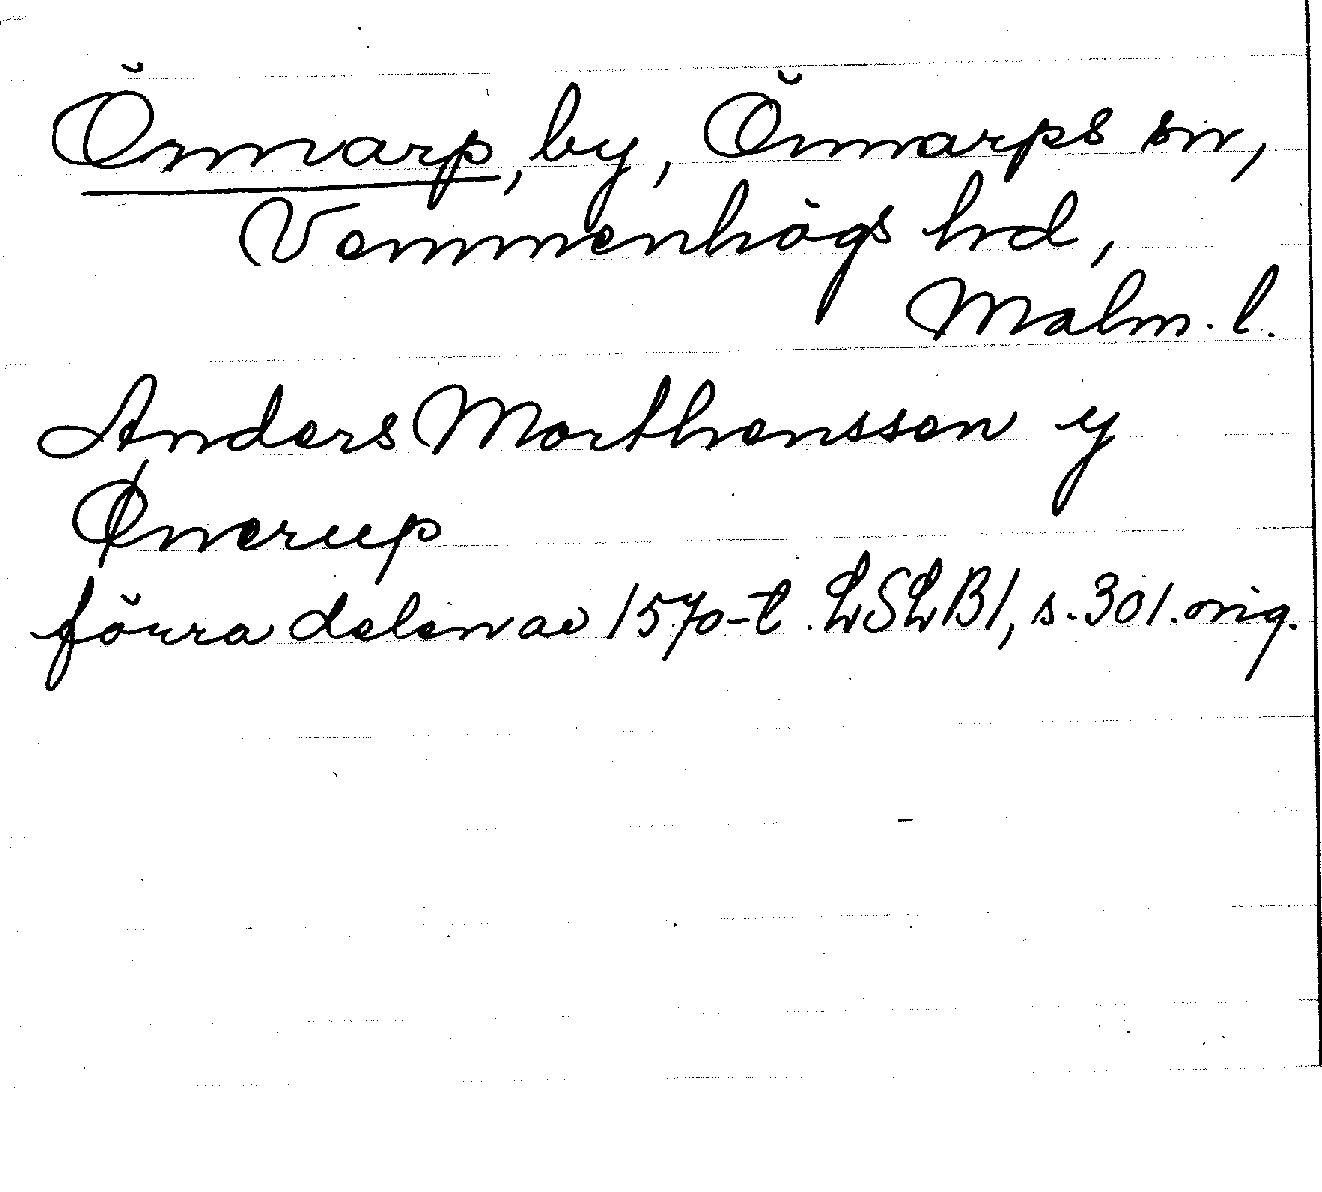 Önnarp, by, Önnarps sn,
Vemmenhögs hd,
Malm. l.
Anders Morthenssen y
Ønerup
förra delen av 1570-t. LSLB1, s. 301. orig.